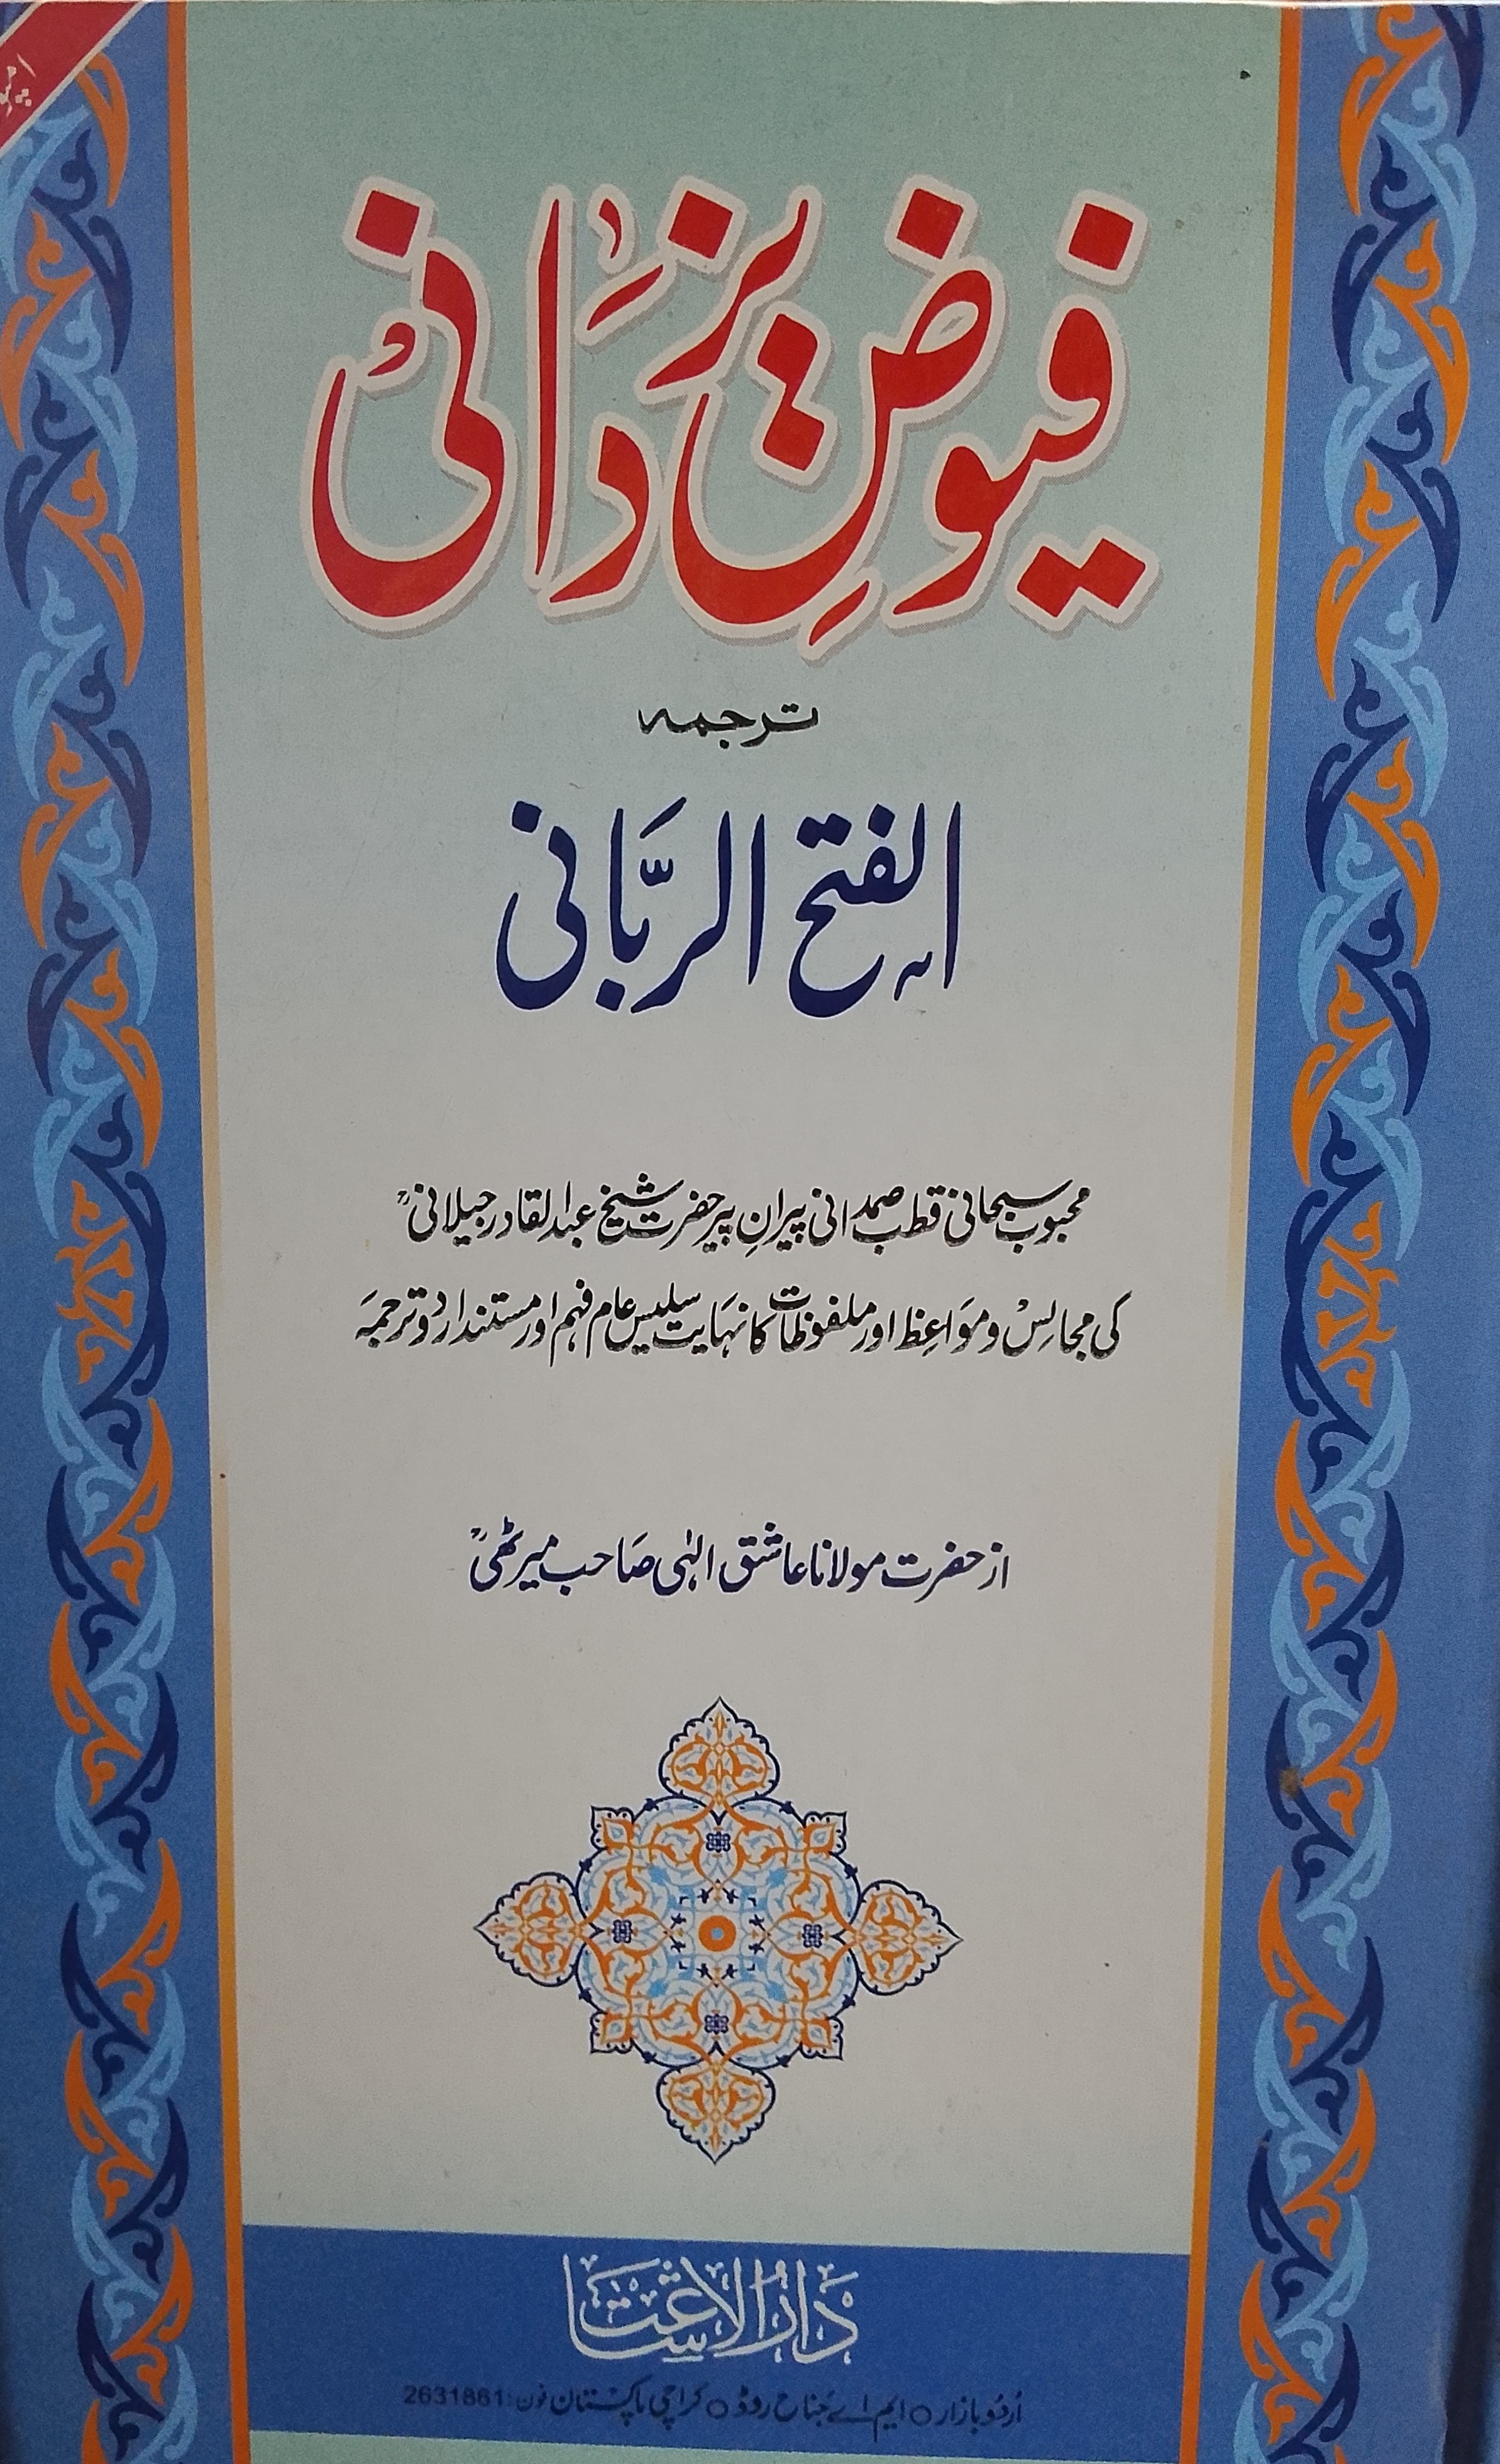 فیوضِ یزدانی
ترجمہ
الفتح الربانی
محبوب سبحانی قطب صمدانی پیرانِ پیر حضرت شیخ عبدالقادر جیلانیؒ
کی مجالس و مواعظ اور ملفوظات کا نہایت سلیس عام فہم اور مستند اردو ترجمہ
از حضرت مولانا عاشق الٰہی صاحب میرٹھیؒ
دارالاشاعت
اردو بازار ○ ایم اے جناح روڈ ○ کراچی پاکستان فون: 2631861